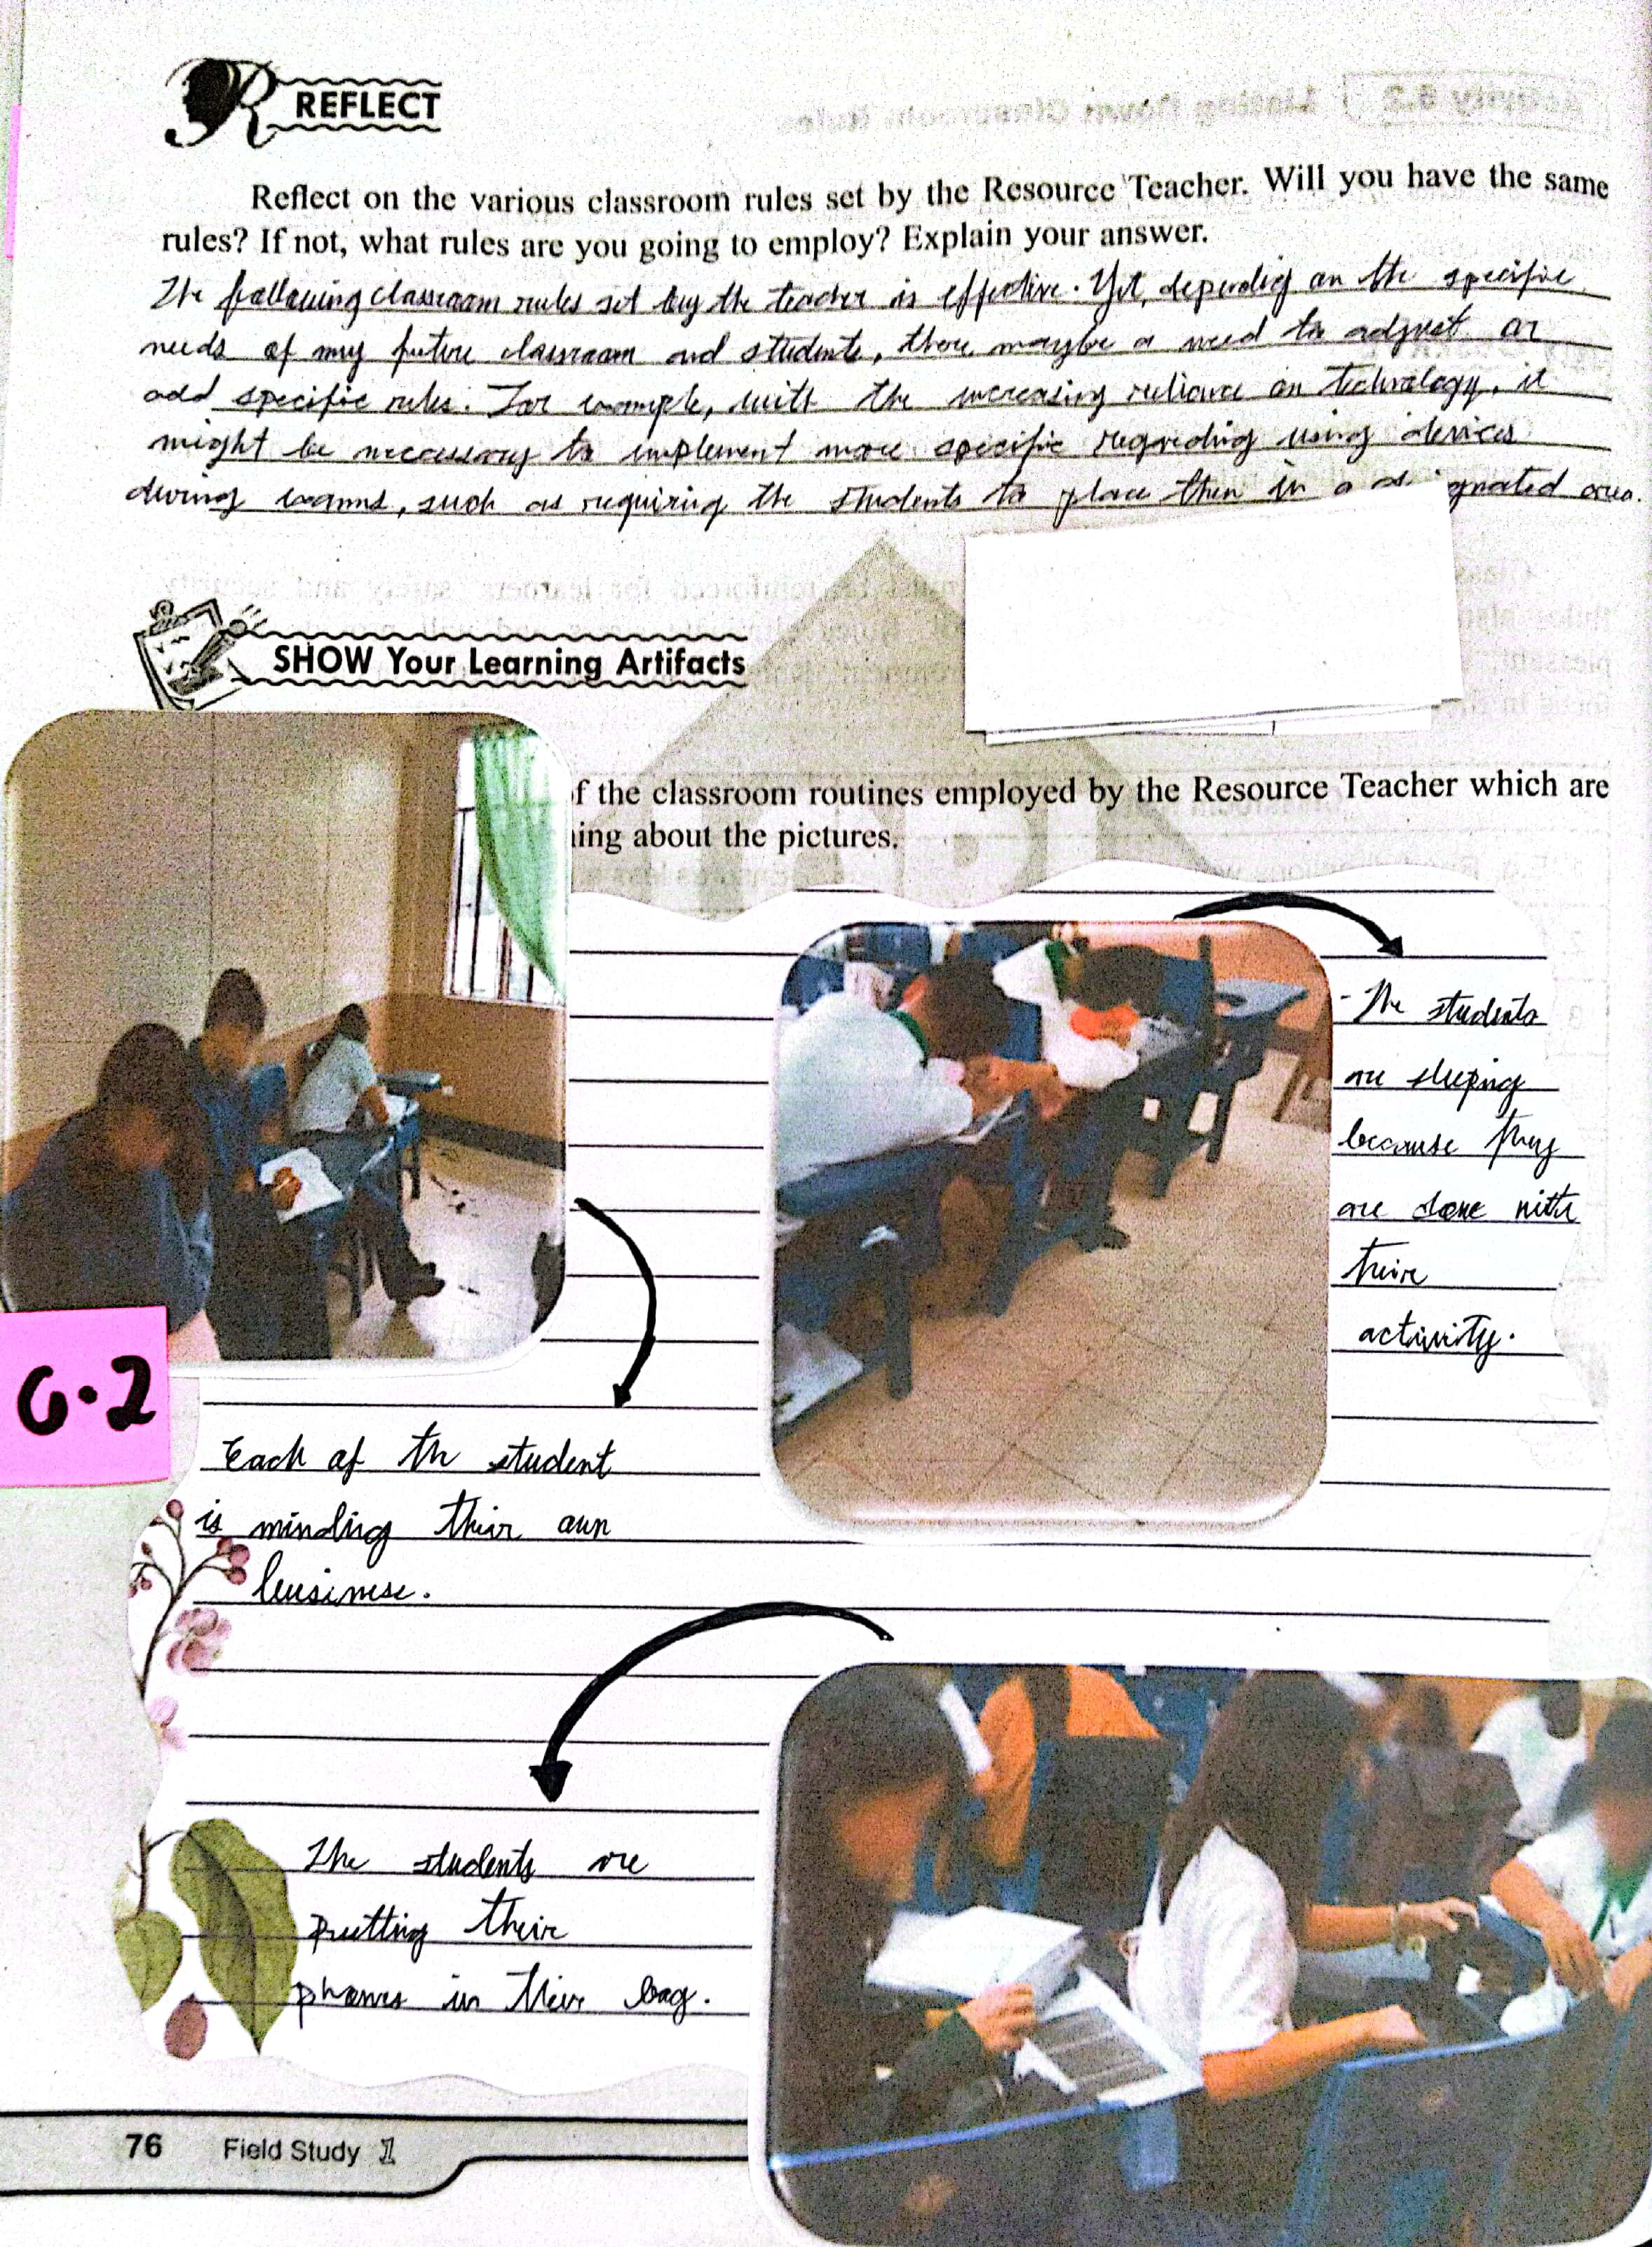 REFLECT
Reflect on the various classroom rules set by the Resource Teacher. Will you have the same
rules? If not, what rules are you going to employ? Explain your answer.
The following classroom rules set by the teacher is effective. Yet, dependig on the specific
needs of my future classroom and students, there maybe a need to adjust or
add specific rules. For example, with the increasing reliance on technology, it
might be necessary to implement more specific regarding using devices
during exams, such as requiring the students to place then in a
SHOW Your Learning Artifacts
of the classroom routines employed by the Resource Teacher which are
ing about the pictures.
- The students
are sleeping
because they
are done with
their
activity.
6.2
Each of the student
is minding their own
business.
The students are
putting their
phones in their bag.
76 Field Study 1